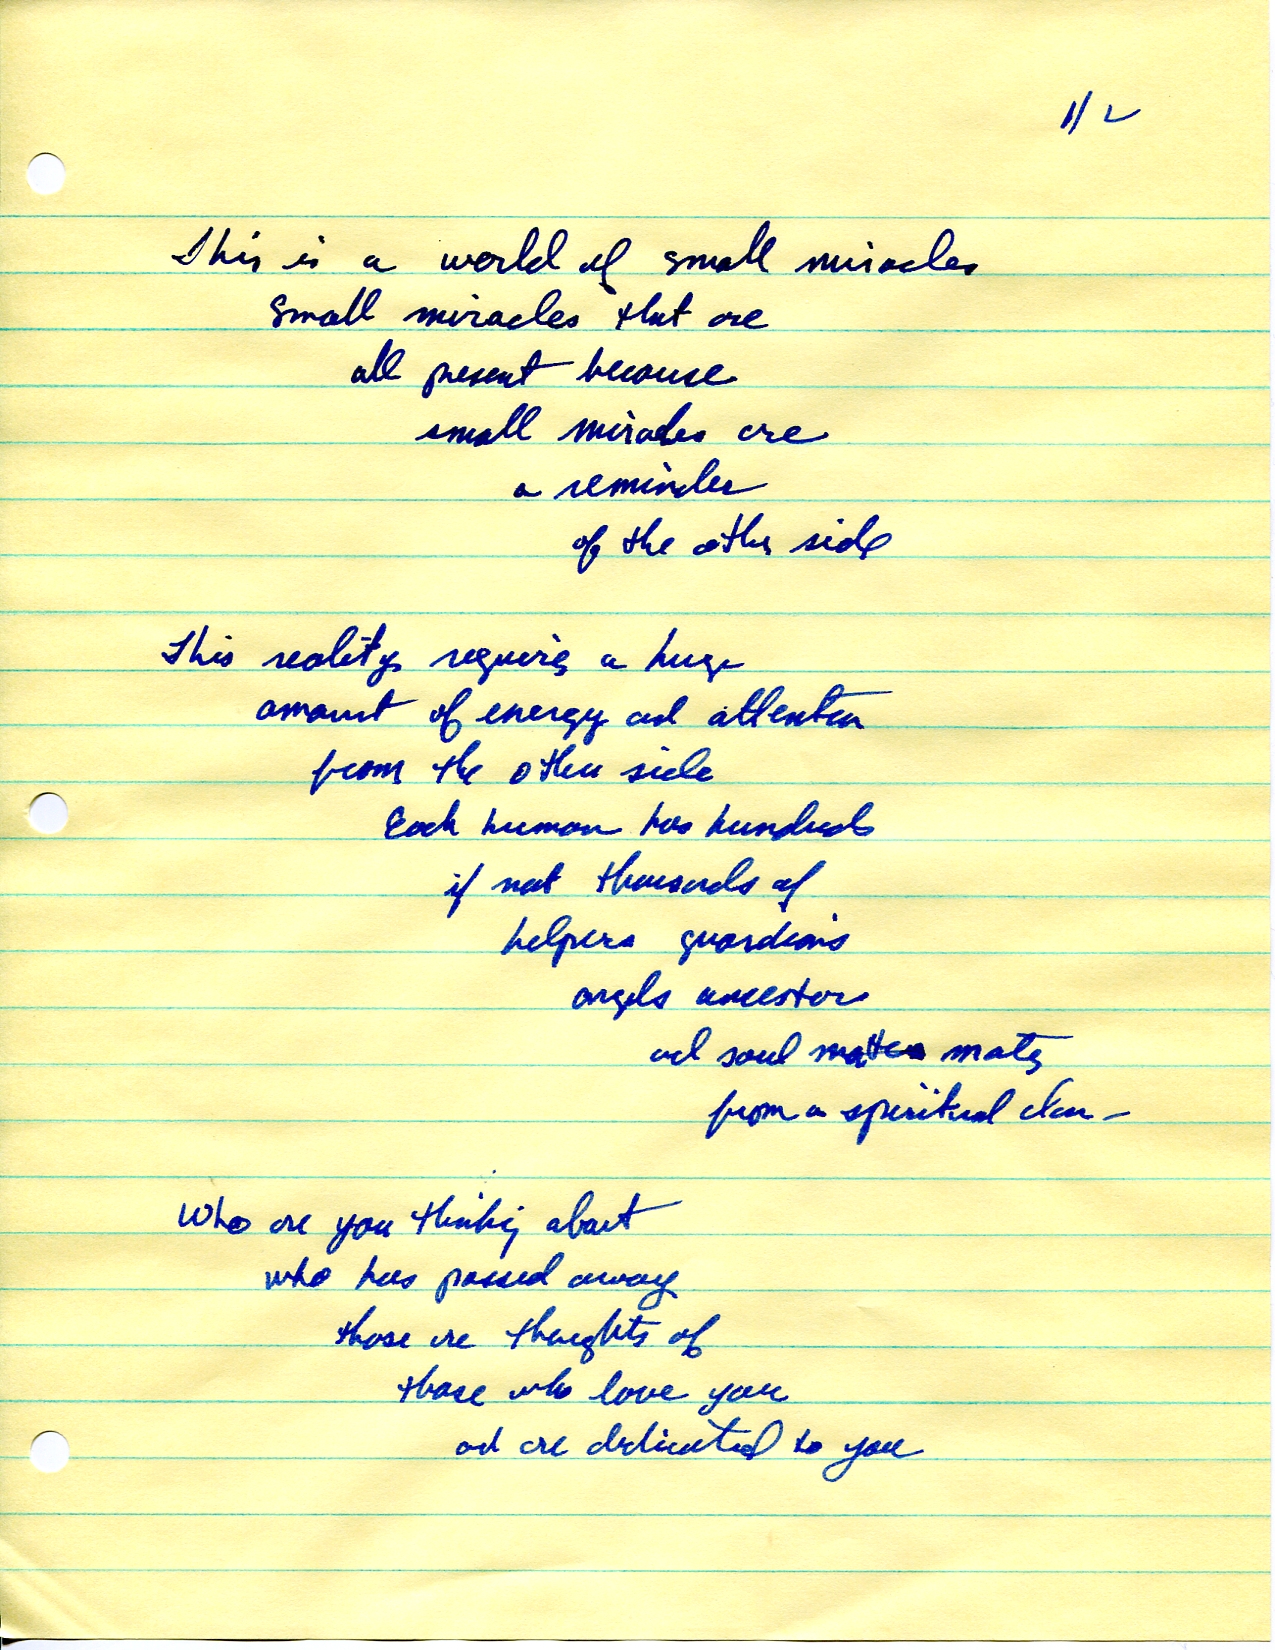 1/2
This is a world of small miracles
small miracles that are
all present because
small miracles are
a reminder
of the other side
This reality requires a huge
amount of energy and attention
from the other side
Each human has hundreds
if not thousands of
helpers guardians
angels ancestors
and soul mates
from a spiritual clan -
Who are you thinking about
who has passed away
those are thoughts of
those who love you
and are dedicated to you